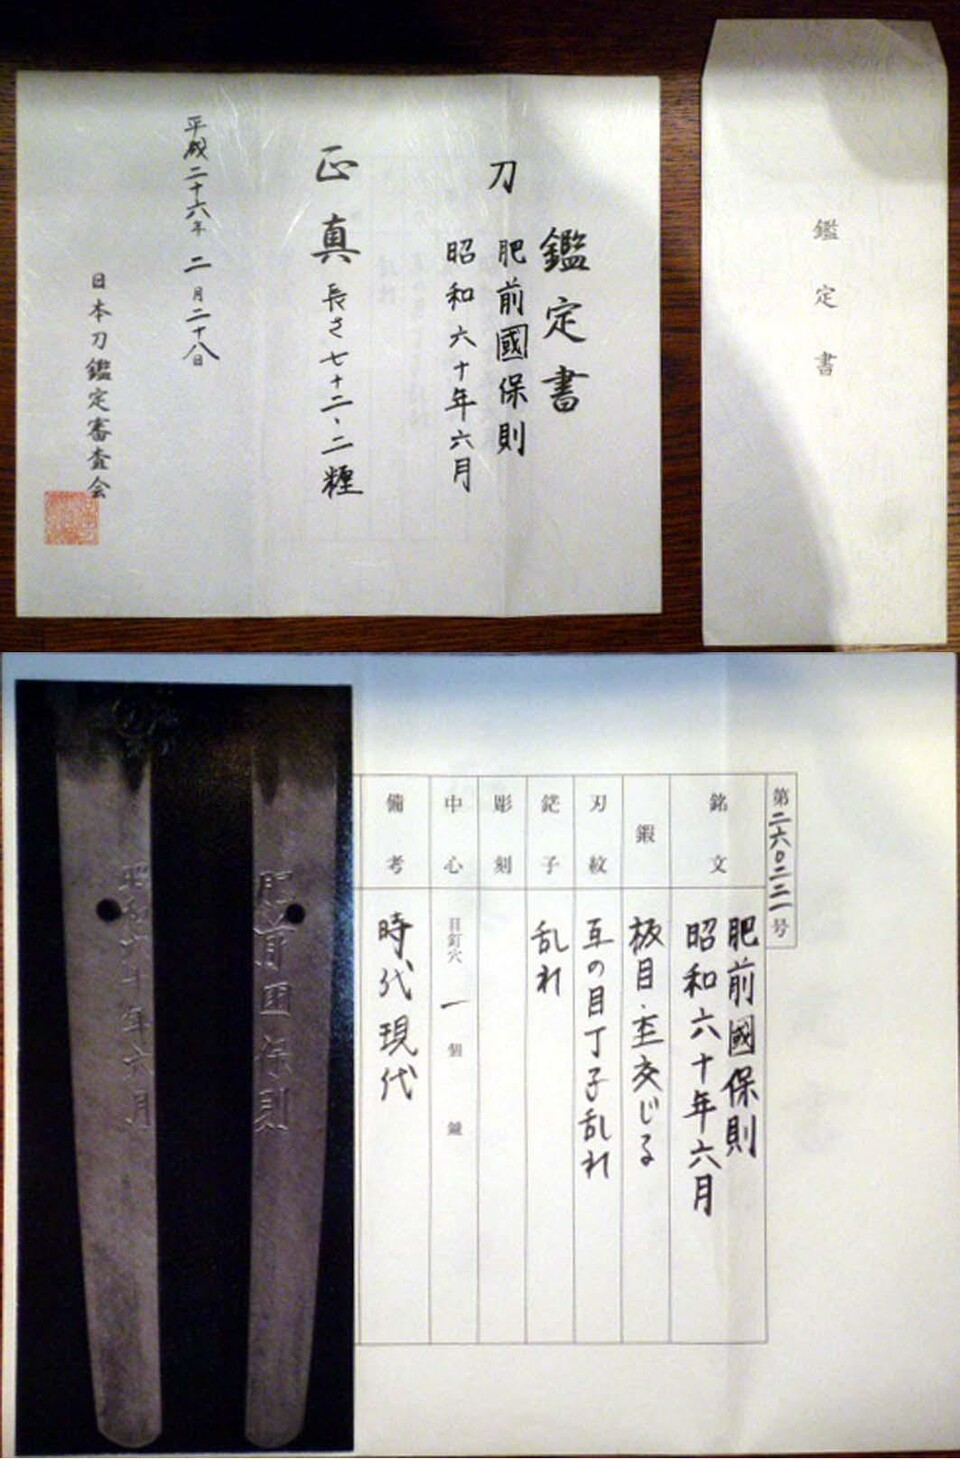 鑑定書
刀 肥前國保則
昭和六十年六月
正真 長さ七十二、二糎
平成二十六年 二月二十八日
日本刀鑑定審査会
鑑定書
第二六〇二二一号
銘文 肥前國保則
昭和六十年六月
鍜 板目、杢交じる
刃紋 互の目丁子乱れ
鋩子 乱れ
彫刻
中心 目釘穴 一個 鑢
備考 時代現代
肥前国保則
昭和六十年六月